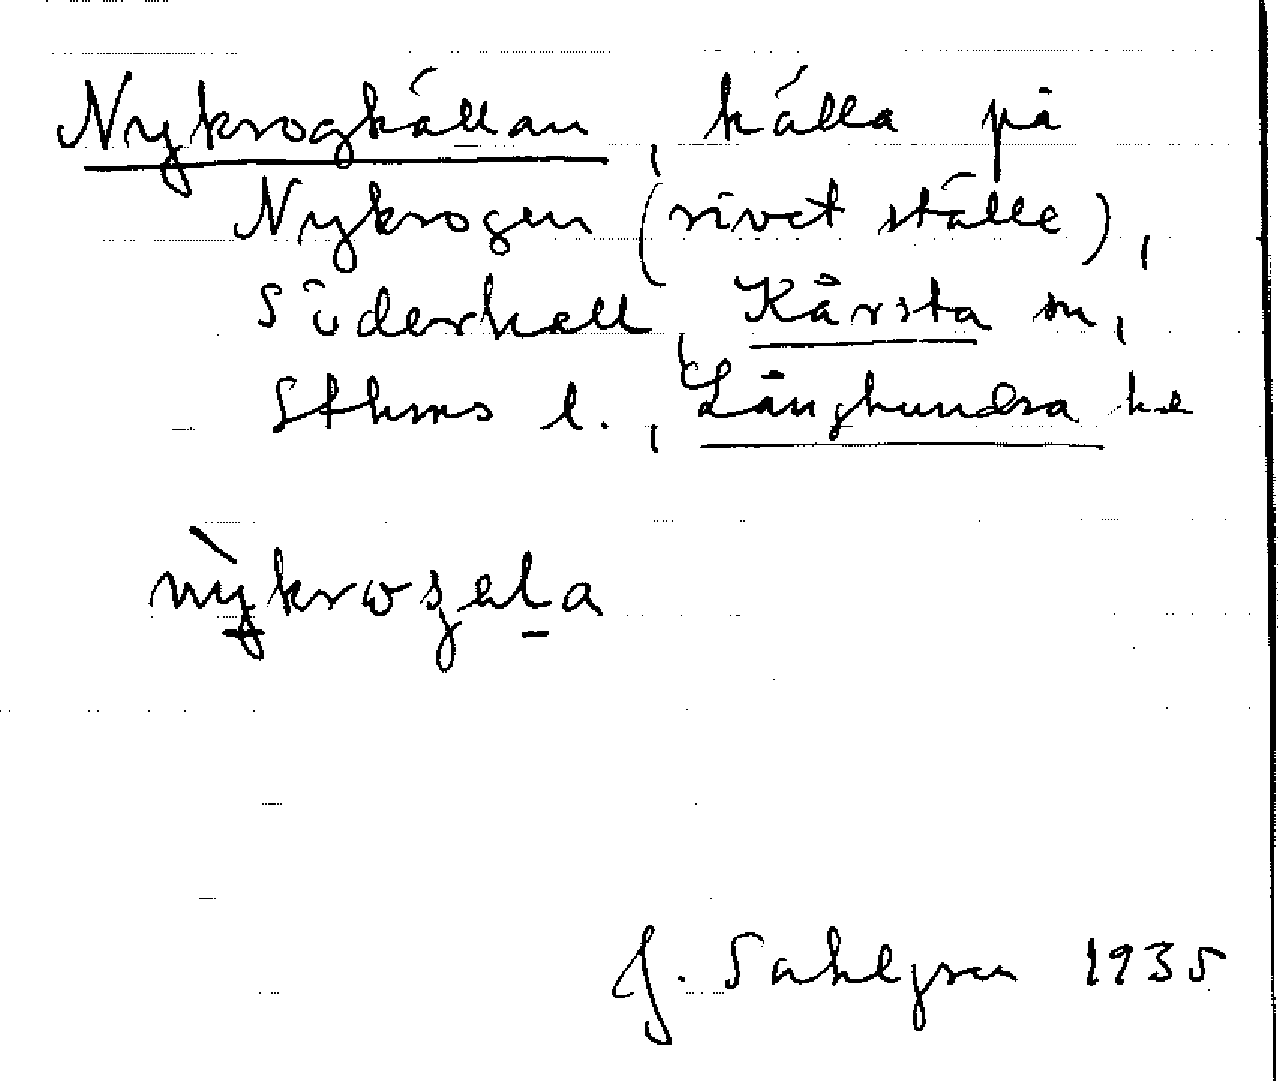 Nykrogkällan, källa på
Nykrogen (rivet ställe),
Söderhall, Kårsta sn,
Sthms l., Långhundra hd
nỳkrωʒɛla
J. Sahlgren 1935